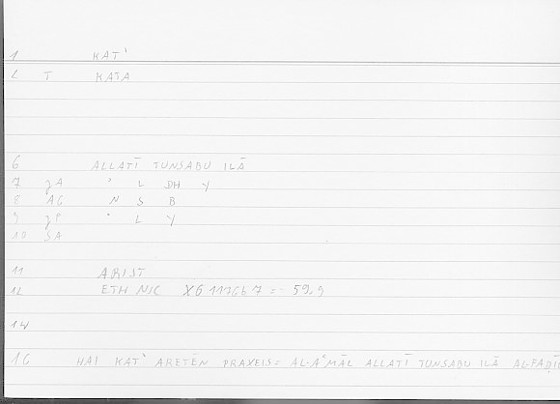 1 KAT'
2 T KATA
6 ALLATĪ TUNSABU ILĀ
7 gA ' L DH Y
8 AG N S B
9 gP ' L Y
10 SA
11 ARIST
12 ETH NIC X6 1176b7 = 59.9
14
16 HAI KAT' ARETĒN PRAXEIS = AL-A'MĀL ALLATĪ TUNSABU ILĀ